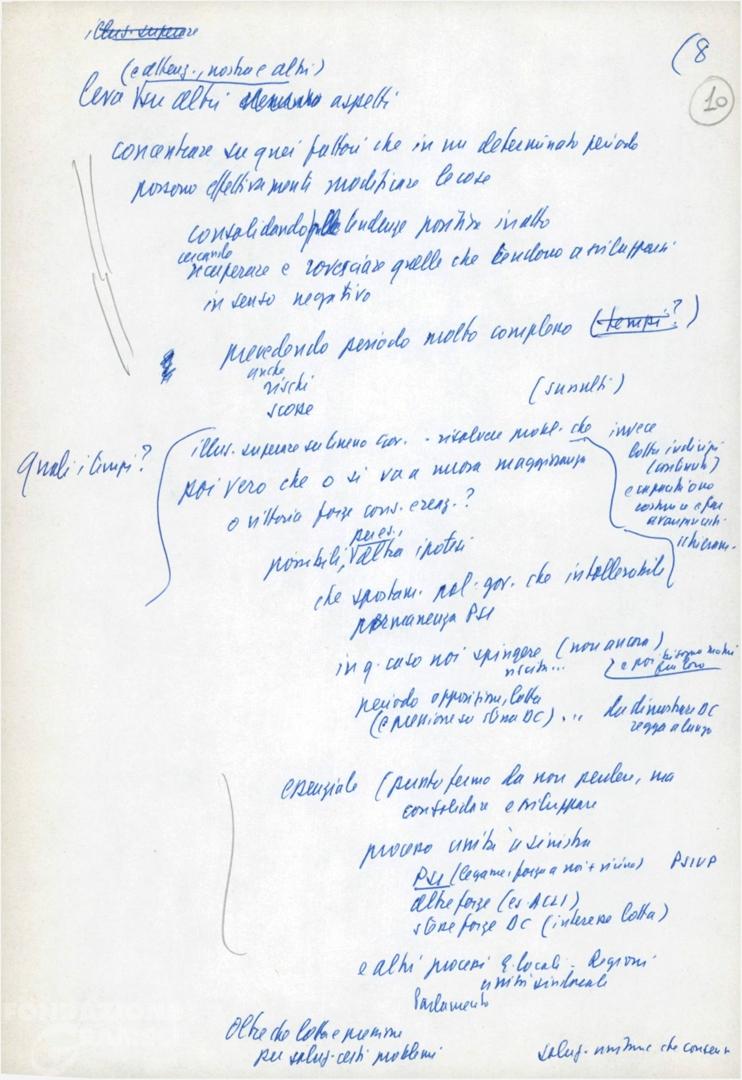 illus. superare
(8
10
(e atteng., nostra e altri)
leva su altri aspetti
concentrare su quei fattori che in un determinato periodo
possono effettivamente modificare le cose
consolidando tendenze positive in atto
cercando
recuperare e rovesciare quelle che tendono a svilupparsi
in senso negativo
prevedendo periodo molto complesso (tempi?)
anche
rischi
scosse
(sussulti)
Quali i tempi?
illus. superare gov. - risolvere probl. che invece
poi vero che o si va a nuova maggioranza
o vittoria forze cons. e reaz.?
lotta
(continuità)
e capacità
costruire e far
schieram.
per es.,
possibili, altra ipotesi
che spostam. pol. gov. che intollerabile
permanenza PSI
in q. caso noi spingere (non ancora)
uscita...
e poi bisogna
per loro
periodo opposizione, lotta
(e pressione su sinistra DC) ...
da dimostrare DC
regga a lungo
essenziale (punto fermo da non perdere, ma
consolidare e sviluppare
processo unità a sinistra
PSI (legame, forze a noi + vicine) PSIUP
altre forze (es. ACLI)
stesse forze DC (interesse lotta)
e altri processi E. locali - Regioni
unità sindacali
Parlamento
Oltre che lotta e pressione
per soluz. certi problemi
soluz. che consen
FONDAZIONE